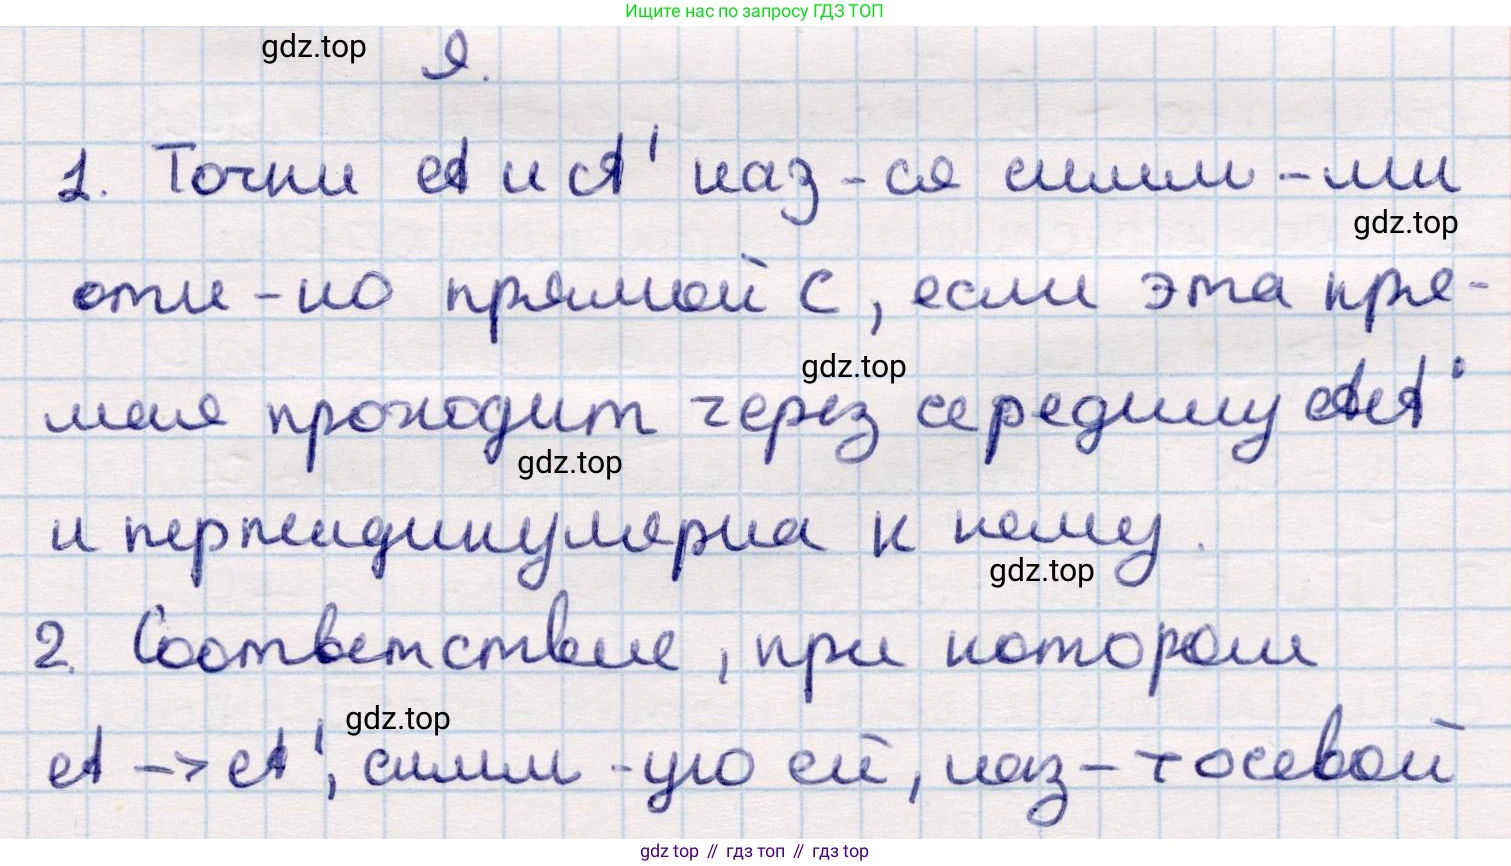 Ищите нас по запросу ГДЗ ТОП
gdz.top
9.
1. Точки A и A' наз-ся симм-ми
gdz.top
отн-но прямой c, если эта пря-
gdz.top
мая проходит через середину AA'
gdz.top
и перпендикулярна к нему.
gdz.top
2. Соответствие, при котором
gdz.top
A -> A', симм-ую ей, наз-т осевой
gdz top // гдз топ // гдз top